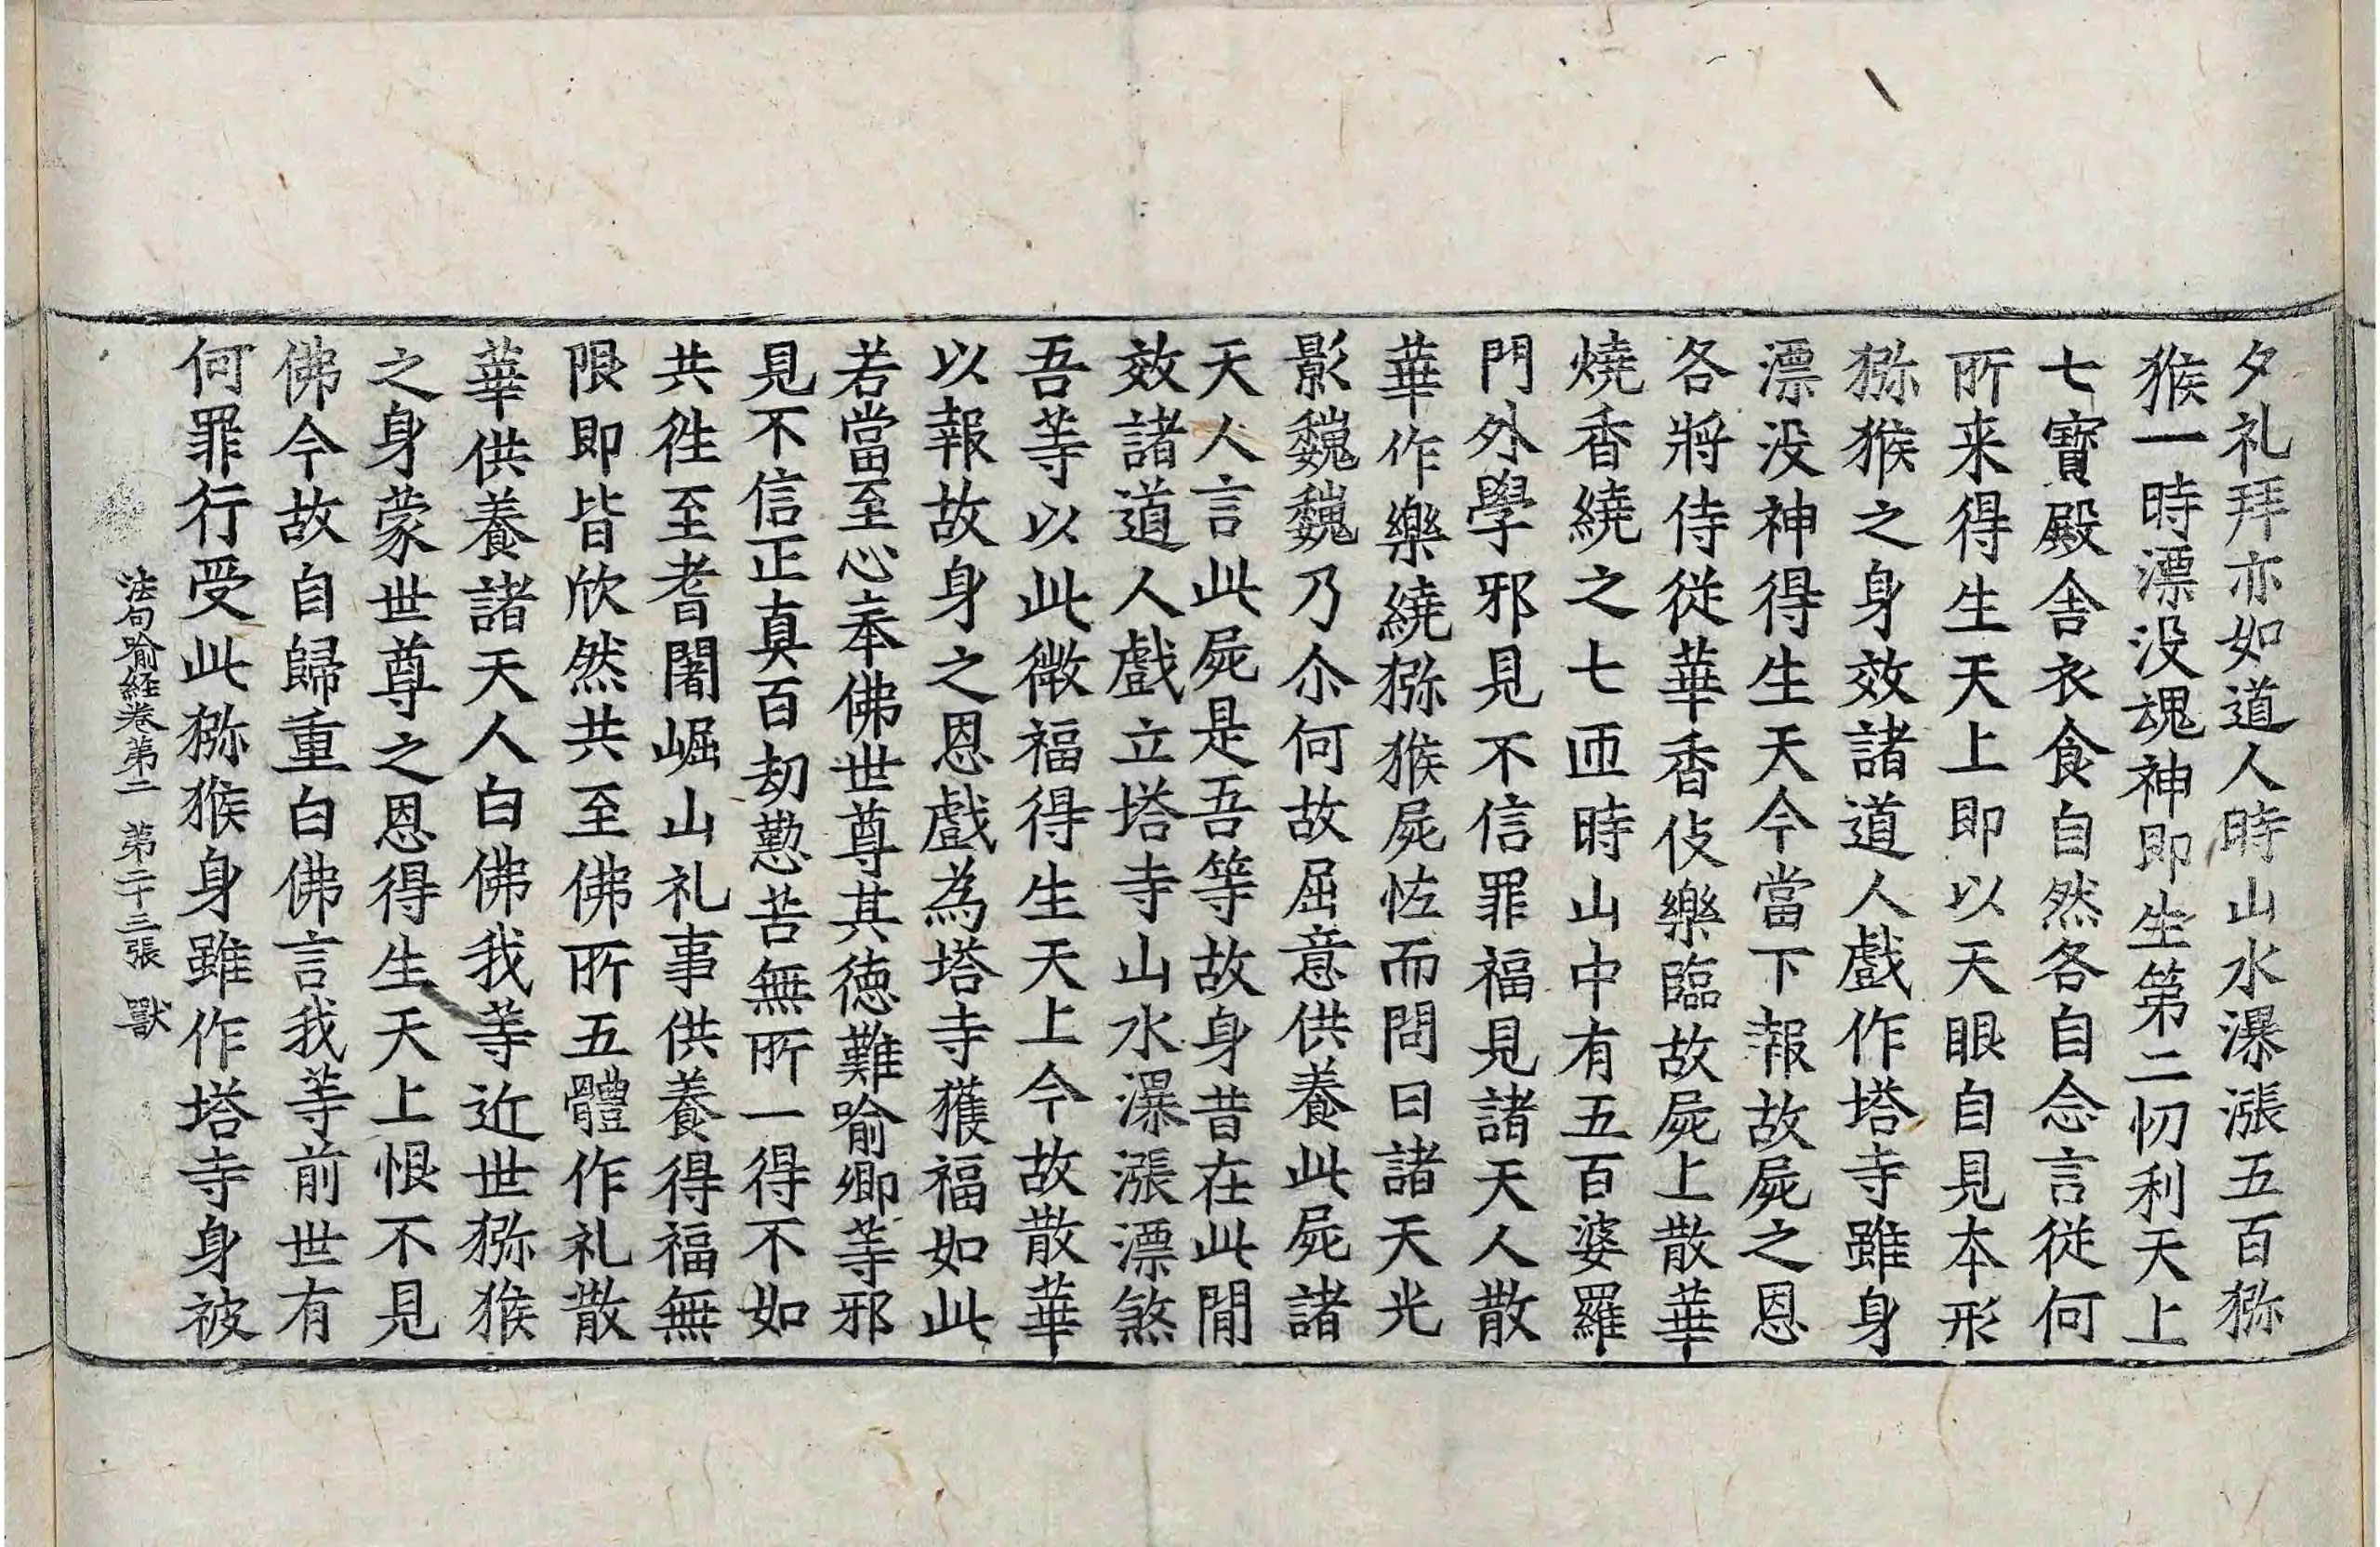 夕礼拜亦如道人時山水瀑漲五百猕
猴一時漂没魂神即生第二忉利天上
七寶殿舎衣食自然各自念言従何
所来得生天上即以天眼自見夲形
猕猴之身效諸道人戲作塔寺雖身
漂没神得生天今當下報故屍之恩
各將侍従華香伎樂臨故屍上散華
燒香繞之七匝時山中有五百婆羅
門外學邪見不信罪福見諸天人散
華作樂繞猕猴屍怪而問曰諸天光
影巍巍乃尒何故屈意供養此屍諸
天人言此屍是吾等故身昔在此閒
效諸道人戲立塔寺山水瀑漲漂煞
吾等以此微福得生天上今故散華
以報故身之恩戲為塔寺獲福如此
若當至心奉佛世尊其徳難喻卿等邪
見不信正真百劫懃苦無所一得不如
共徃至耆闍崛山礼事供養得福無
限即皆欣然共至佛所五體作礼散
華供養諸天人白佛我等近世猕猴
之身蒙世尊之恩得生天上恨不見
佛今故自歸重白佛言我等前世有
何罪行受此猕猴身雖作塔寺身被
法句喻経巻第二 第二十三張 獸